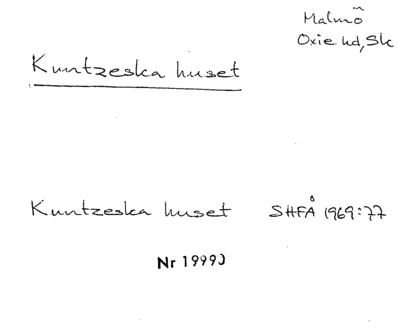 Malmö
Oxie hd, Sk
Kuntzeska huset
Kuntzeska huset SHFÅ 1969:77
Nr 19990